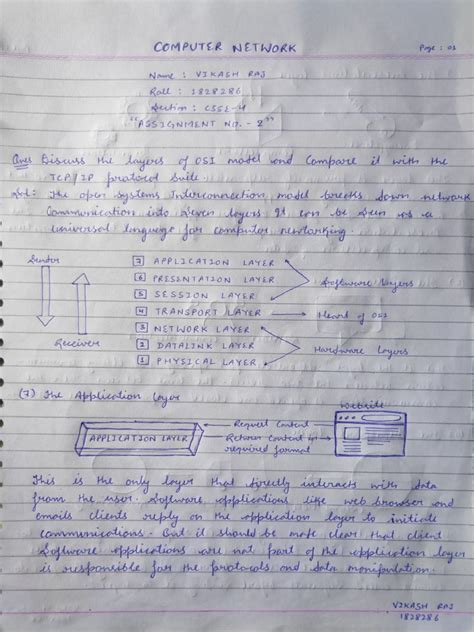 COMPUTER NETWORK
Page : 01
Name : VIKASH RAJ
Roll : 1828286
Section : CSSE-4
"ASSIGNMENT NO. - 2"
Ques Discuss the layers of OSI model and compare it with the
TCP/IP protocol suite.
Sol: The open systems Interconnection model breaks down network
communication into seven layers. It can be seen as a
universal language for computer networking.
Sender
Receiver
7 APPLICATION LAYER
6 PRESENTATION LAYER
5 SESSION LAYER
4 TRANSPORT LAYER
3 NETWORK LAYER
2 DATALINK LAYER
1 PHYSICAL LAYER
Software layers
Heart of OSI
Hardware layers
(7) The Application layer
APPLICATION LAYER
Request Content
Return Content in
required format
Website
This is the only layer that directly interacts with data
from the user. Software applications like web browser and
emails clients reply on the application layer to initiate
communications. But it should be made clear that client
software applications are not part of the application layer
is responsible for the protocols and data manipulation.
VIKASH RAJ
1828286